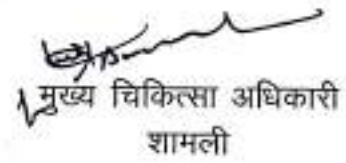 मुख्य चिकित्सा अधिकारी
शामली